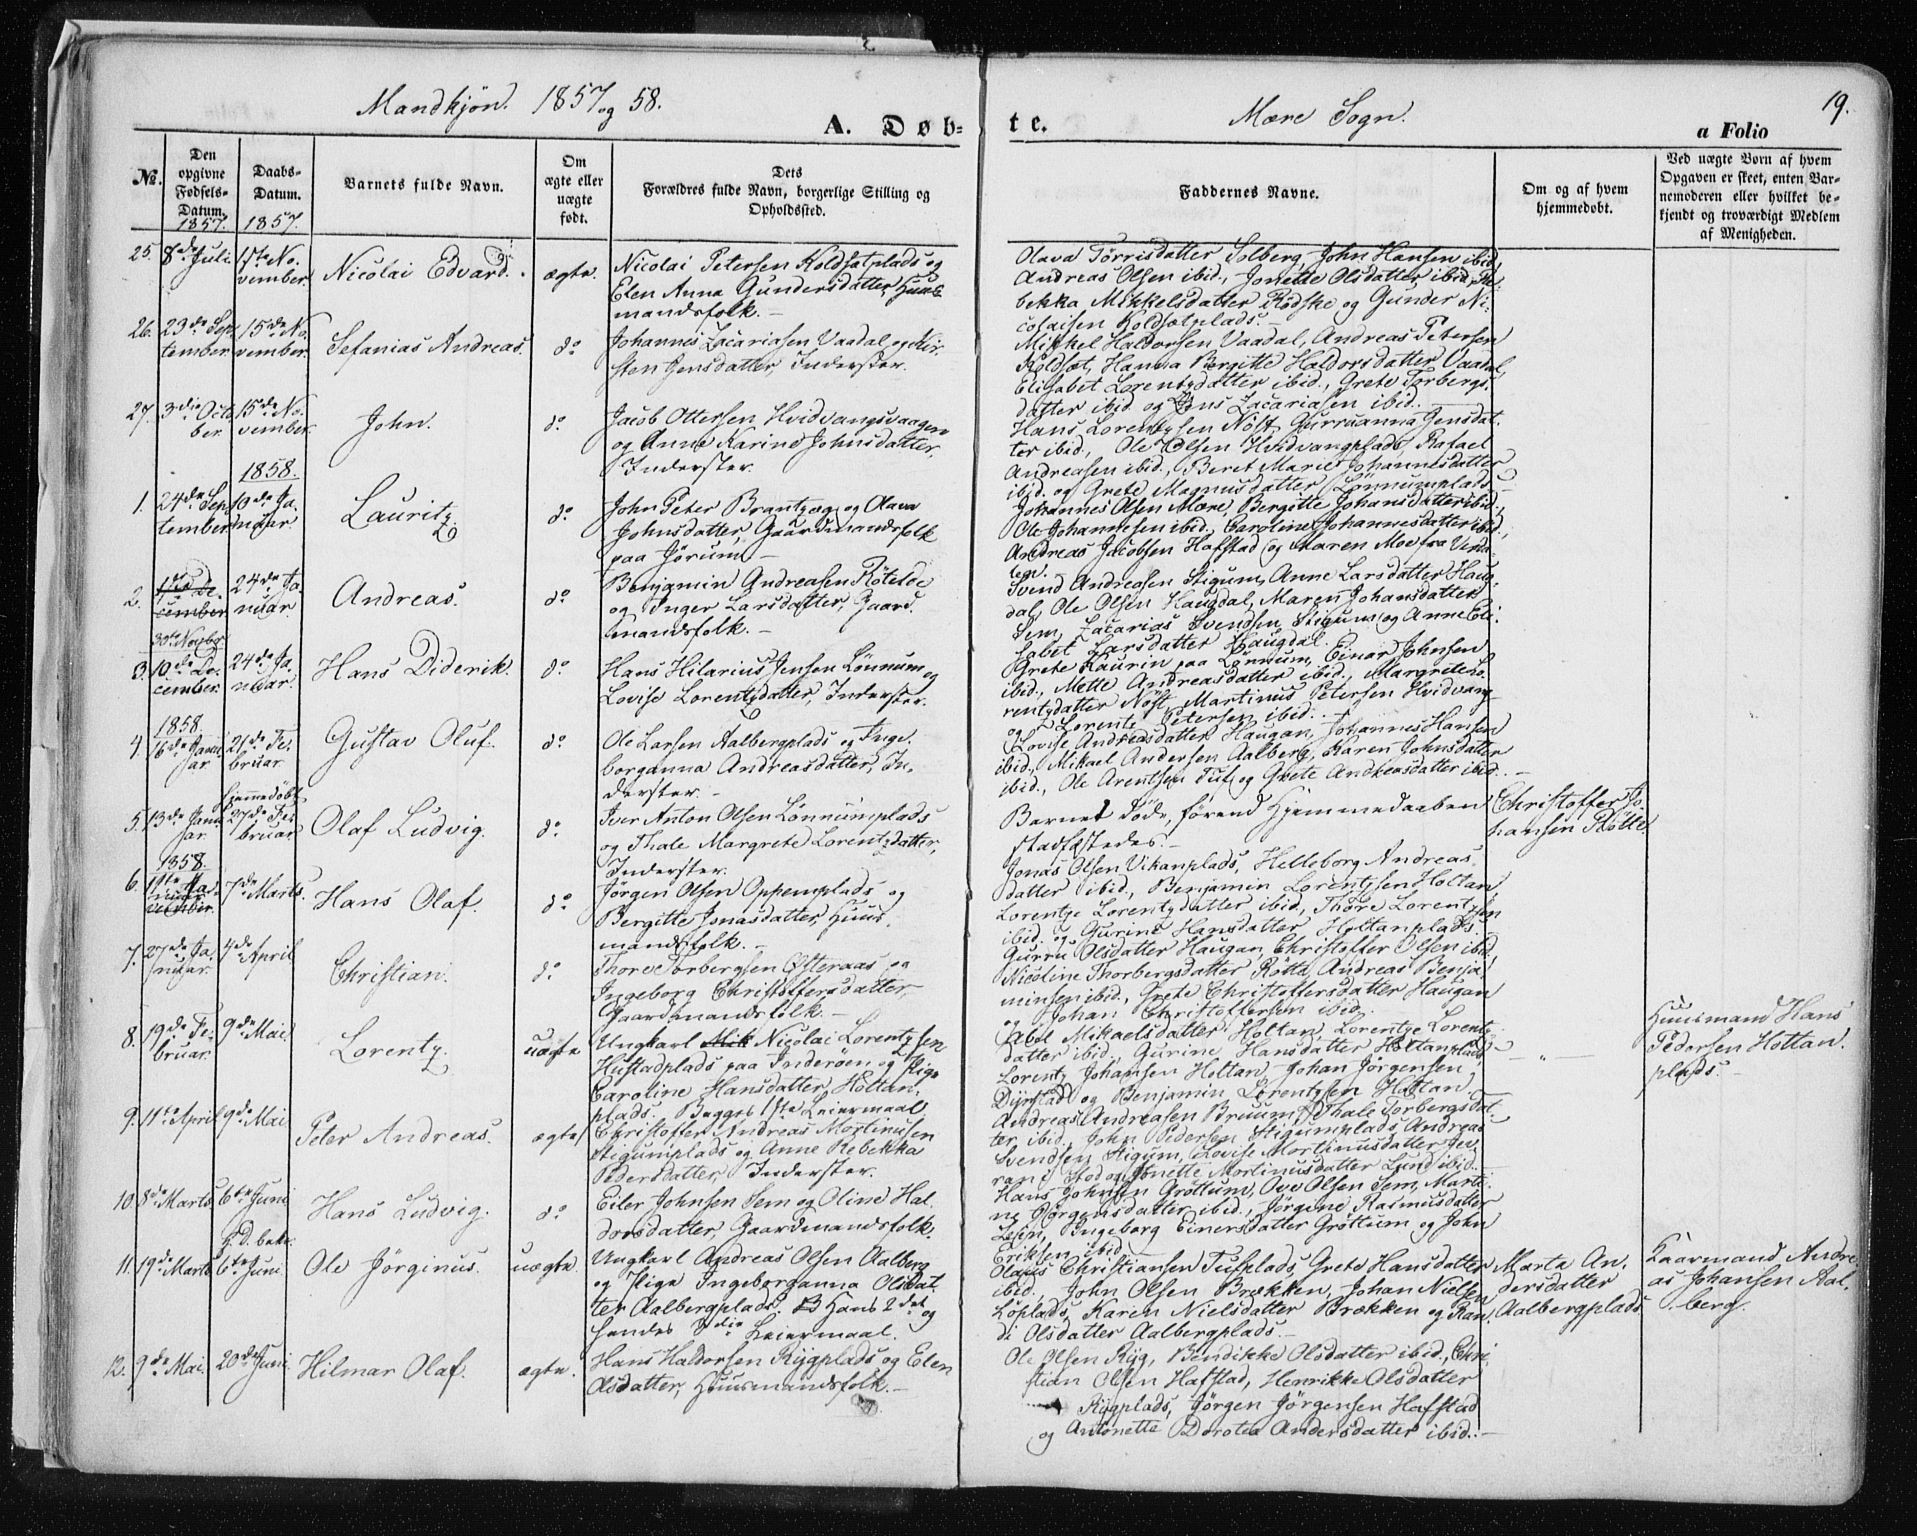 Mandkjøn. 1857 og 58.
A. Døb-
te.
Mære Sogn.
19.
a Folio
No.
Den opgivne Fødsels-Datum.
1857.
Daabs-Datum.
1857.
Barnets fulde Navn.
Om ægte eller uægte født.
Dets
Forældres fulde Navn, borgerlige Stilling og
Opholdssted.
Faddernes Navne.
Om og af hvem
hjemmedøbt.
Ved uægte Børn af hvem
Opgaven er skeet, enten Bar-
nemoderen eller hvilket be-
kjendt og troværdigt Medlem
af Menigheden.
25. 8de Juli 15de No-
vember. Nicolai Edvard. ægte.
Nicolai Petersen Koldsætplads og
Elen Anna Gundersdatter, Huus-
mandsfolk.-
Olava Tørrisdatter Solberg, John Hansen ibid,
Andreas Olsen ibid., Jonette Olsdatter ibid, Re-
bekka Mikkelsdatter Rødske og Gunder Ni-
colaisen Koldsætplads.-
26. 23de Sep-
tember 15de No-
vember. Sefanias Andreas. do
Johannes Zacariasen Vaadal og Kir-
sten Jensdatter, Inderster.
Mikkel Haldorsen Vaadal, Andreas Petersen
Koldsæt, Hanna Bergitte Haldorsdatter Vaadal,
Elisabet Lorentsdatter ibid., Grete Torbergs-
datter ibid og Jens Zacariasen ibid.
27. 3die Octo-
ber 15de No-
vember. John. do.
Jacob Ottersen Hvidvangsvaagen
og Anne Karine Johnsdatter,
Inderster.
Hans Lorentsen Nøst, Gurruanna Jensdat-
ter ibid., Ole Olsen Hvidvangplads, Rafael
Andreasen ibid., Beret Marie Johannesdatter
ibid. og Grete Magnusdatter Lønnumplads.-
1858.
1. 24de Sep-
tember 10de Ja-
nuar. Lauritz. do.
John Peter Brantzæg og Olava
Johnsdatter, Gaardmandsfolk
paa Jørum.-
Johannes Olsen Mære, Bergitte Johansdatter ibid.,
Ole Johannesen ibid., Caroline Johannesdatter ibid.,
Andreas Jacobsen Hafstad og Maren Moe fra Verda-
len.
2. 1ste De-
cember
30te Novbr. 24de Ja-
nuar. Andreas. do
Benjamin Andreasen Røtelde
og Inger Larsdatter, Gaard-
mandsfolk.-
Svend Andreasen Stigum, Anne Larsdatter Haug-
dal, Ole Olsen Haugdal, Maren Johansdatter
Sem, Zacarias Svendsen Stigum og Anne Eli-
sabet Larsdatter Haugdal.
3. 10de De-
cember. 24de Ja-
nuar. Hans Diderik. do.
Hans Hilarius Jensen Lønnum og
Lovise Lorentzdatter, Inderster.
Grete Kaurin paa Lønnum, Einar Johnsen
ibid., Mette Andreasdatter ibid., Margrete Lo-
rentzdatter Nøst, Martinus Petersen Hvidvang
og Lorents Petersen ibid.
1858
4. 16de Janu-
ar 21de Fe-
bruar Gustav Oluf. do.
Ole Larsen Aalbergplads og Inge-
borganna Andreasdatter, In-
derster.-
Lovise Andreasdatter Haugan, Johannes Hansen
ibid., Mikael Andersen Aalberg, Karen Johnsdatter
ibid., Ole Arentsen Tuf og Grete Andreasdatter ibid.-
5. 13de Janu-
ar. hjemmedøbt
27de Fe-
bruar. Olaf Ludvig. do.
Iver Anton Olsen Lønnumplads
og Thale Margrete Lorentzdatter,
Inderster.
Barnet døde, førend Hjemmedaaben
stadfæstedes.-
Christoffer Jo-
hansen Røtte
1858.
6. 19de Ja-
nuar 7de Marts. Hans Olaf. do.
Jørgen Olsen Oppemplads og
Bergitte Jonasdatter, Huus-
mandsfolk.-
Jonas Olsen Vikanplads, Helleborg Andreas-
datter ibid., Benjamin Lorentzsen Holtan,
Lorentze Lorentzdatter ibid, Thore Lorentzsen
ibid. og Gurine Hansdatter Holtanplads.-
7. 27de Ja-
nuar 4de April Christian. do.
Thore Torbergsen Østeraas og
Ingeborg Christoffersdatter,
Gaardmandsfolk.-
Gurru Olsdatter Haugan, Christoffer Olsen ibid.,
Nicoline Thorbergsdatter Røtta, Andreas Benja-
minsen ibid., Grete Christoffersdatter Haugan
og Johan Christoffersen ibid.
8. 19de Fe-
bruar. 9de Mai. Lorentz. uægte
Ungkarl Nicolai Lorentzsen
Hustadplads paa Inderøen og Pige
Caroline Hansdatter, Holtan-
plads. Begges 1ste Leiermaal.
Abel Mikaelsdatter Holtan, Lorentze Lorentz-
datter ibid., Gurine Hansdatter Holtanplads,
Lorentz Johansen Holtan, Johan Jørgensen
Dyrstad og Benjamin Lorentzsen Holtan.
- „ -
Huusmand Hans
Pedersen Holtan-
plads.-
9. 11te April 9de Mai. Peter Andreas. ægte
Christoffer Andreas Mortinusen
Stigumplads og Anne Rebekka
Pedersdatter, Inderster.
Andreas Andreasen Bruum, Thale Torbergsdat-
ter ibid., John Pedersen Stigumplads, Andreas
Svendsen Stigum, Lovise Mortinusdatter
Stod og Jonette Mortinusdatter Lund ibid.
10. 8de Marts 6te Juni Hans Ludvig. do
Eiler Johnsen Sem og Oline Hal-
dorsdatter, Gaardmandsfolk.
Hans Johnsen Grøttum, Ove Olsen Sem, Marti-
ne Jørgensdatter ibid., Jørgine Rasmusdatter
Ingeborg Einersdatter Grøttum og John
Eriksen ibid.
11. 19de Marts 6te Juni. Ole Jørginus. uægte.
Ungkarl Andreas Olsen Aalberg
og Pige Ingeborganna Olsdat-
ter Aalbergplads. Hans 2det og
hendes 3die Leiermaal.
Olaus Christiansen Tufplads, Grete Hansdatter
ibid., John Olsen Brækken, Johan Nielsen
Løplads, Karen Nielsdatter Brækken og Ran-
di Olsdatter Aalbergplads.-
Marta An-
dersdatter
Aalbergplads
Kaarmand Andre-
as Johansen Aal-
berg.
12. 9de Mai. 20de Juni. Hilmar Olaf. ægte.
Hans Haldorsen Rygplads og Elen
Olsdatter, Huusmandsfolk.-
Ole Olsen Ryg, Bendikke Olsdatter ibid., Chri-
stian Olsen Hafstad, Henrikke Olsdatter
Rygplads, Jørgen Jørgensen Hafstad
og Antonette Dorotea Andersdatter ibid.-